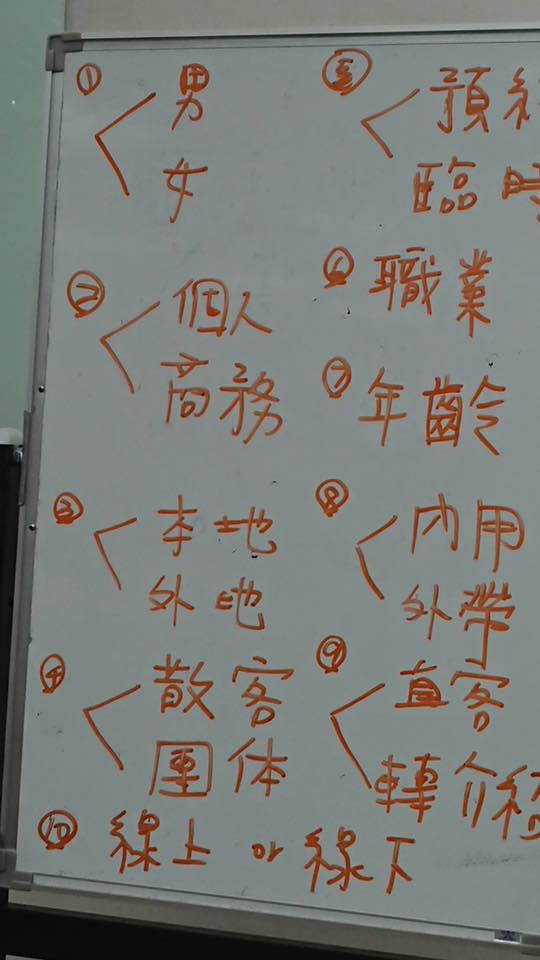 ① 男
女
② 個人
商務
③ 本地
外地
④ 散客
團体
⑤ 預約
臨時
⑥ 職業
⑦ 年齡
⑧ 內用
外帶
⑨ 直客
轉介紹
⑩ 線上 or 線下